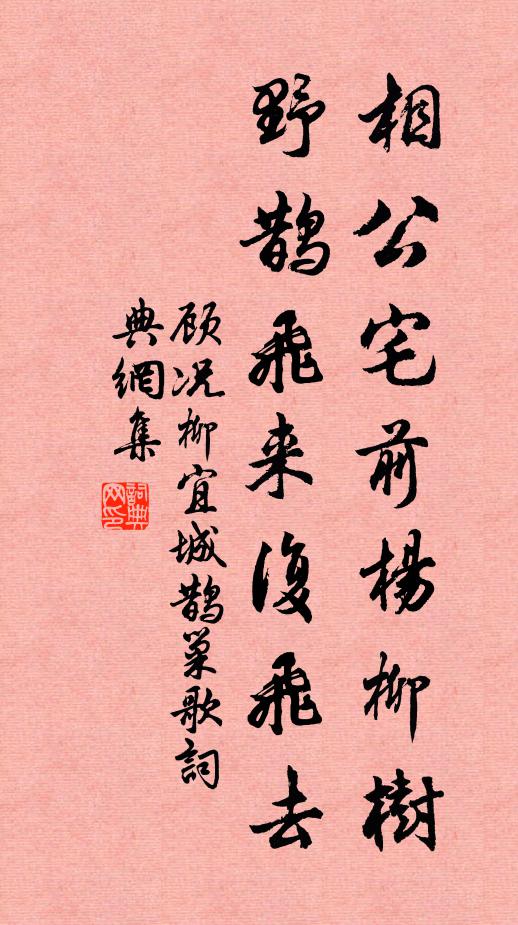 相公宅前楊柳樹
野鵲飛来復飛去
顾况柳宜城鵲巢歌詞
典網集
詞典
网印